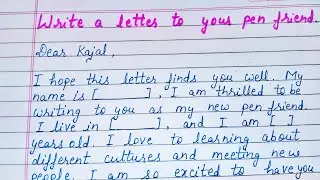 Write a letter to your pen friend.
Dear Kajal,
I hope this letter finds you well. My
name is [ ], I am thrilled to be
writing to you as my new pen friend.
I live in [ ], and I am [ ]
years old. I love to learning about
different cultures and meeting new
people. I am so excited to have you